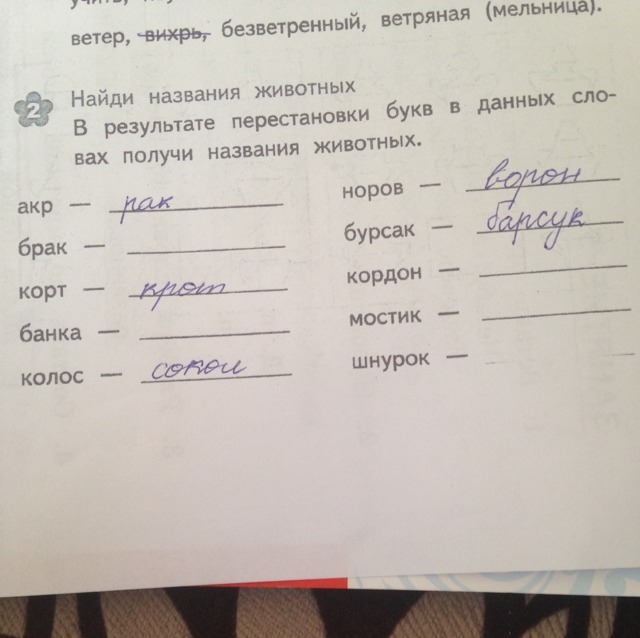 ветер, вихрь, безветренный, ветряная (мельница).
2 Найди названия животных
В результате перестановки букв в данных сло-
вах получи названия животных.
акр — рак
брак —
корт — крот
банка —
колос — сокол
норов — ворон
бурсак — барсук
кордон —
мостик —
шнурок —